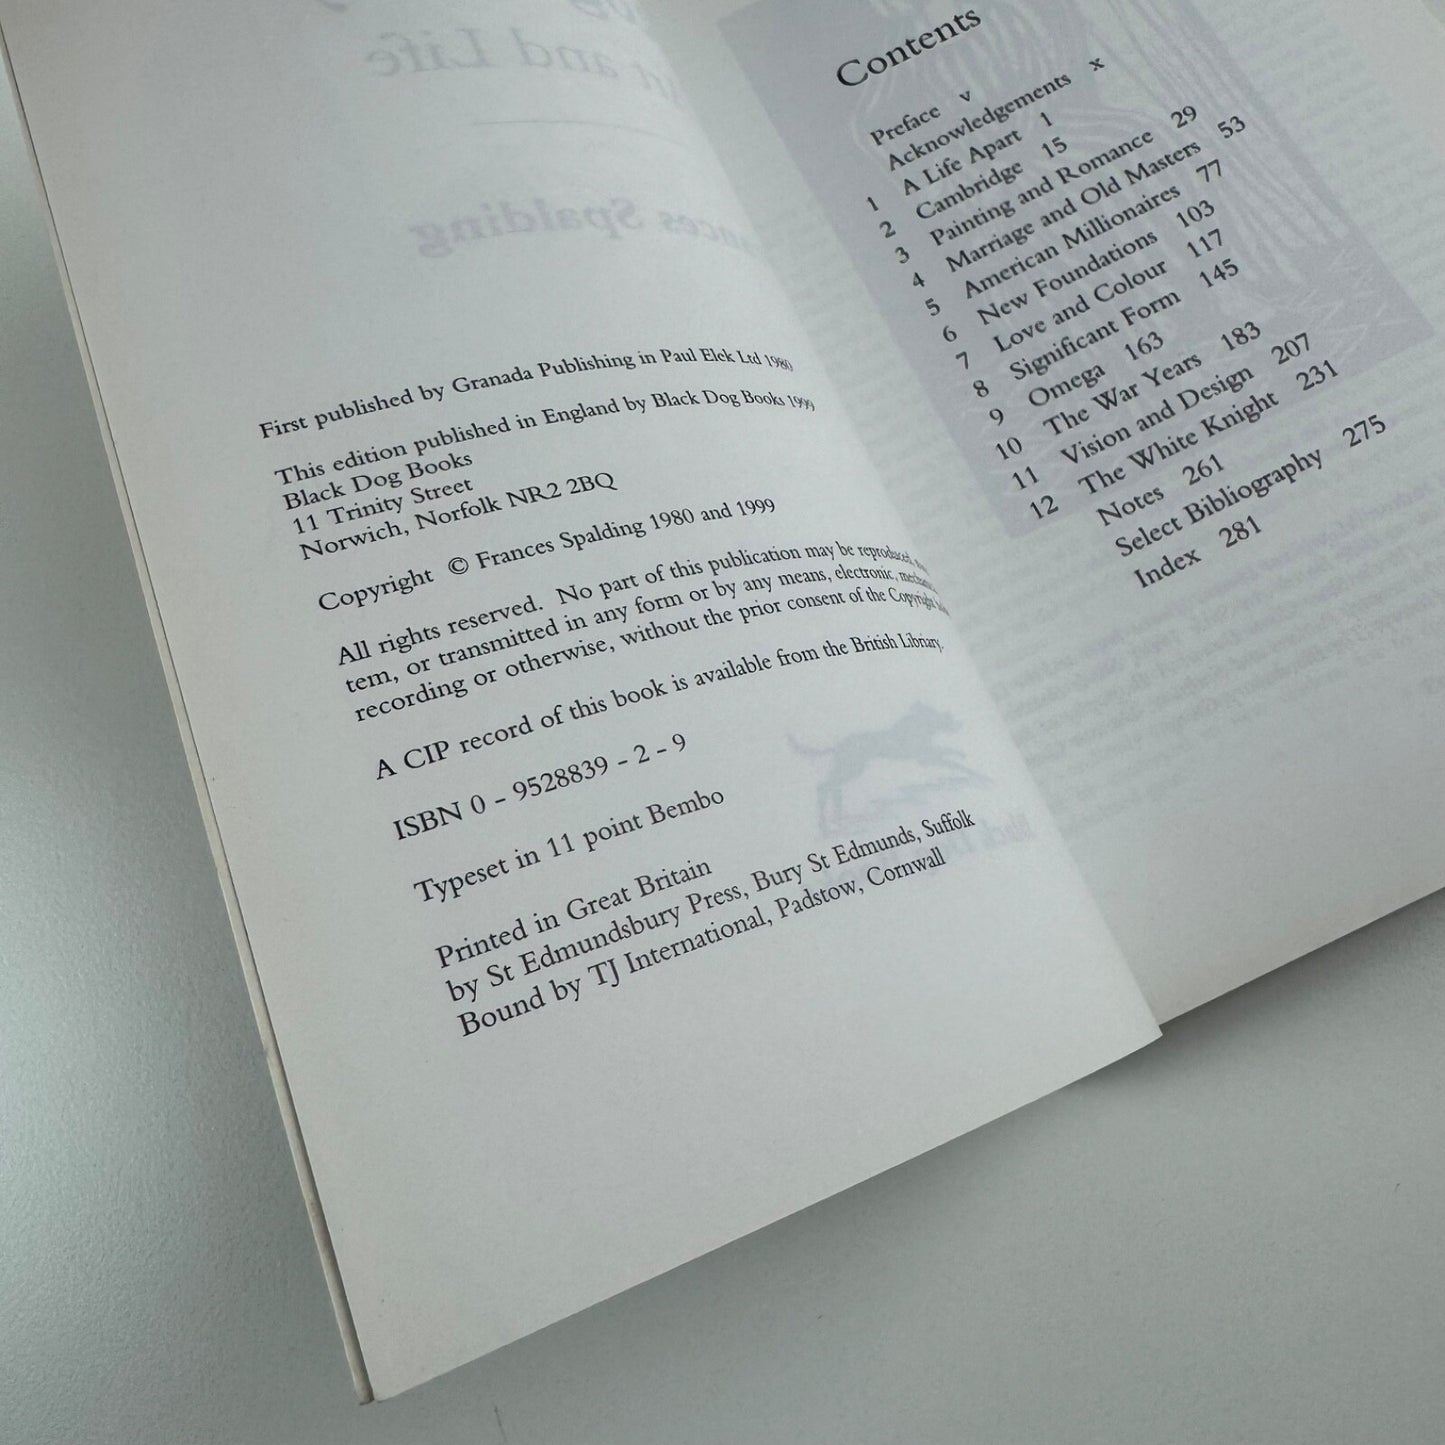 First published by Granada Publishing in Paul Elek Ltd 1980
This edition published in England by Black Dog Books 1999
Black Dog Books
11 Trinity Street
Norwich, Norfolk NR2 2BQ
Copyright © Frances Spalding 1980 and 1999
All rights reserved. No part of this publication may be reproduced,
tem, or transmitted in any form or by any means, electronic,
recording or otherwise, without the prior consent of the Copyright
A CIP record of this book is available from the British Libriary.
ISBN 0 - 9528839 - 2 - 9
Typeset in 11 point Bembo
Printed in Great Britain
by St Edmundsbury Press, Bury St Edmunds, Suffolk
Bound by TJ International, Padstow, Cornwall
Contents
Preface v
Acknowledgements x
1 A Life Apart 1
2 Cambridge 15
3 Painting and Romance 29
4 Marriage and Old Masters 53
5 American Millionaires 77
6 New Foundations 103
7 Love and Colour 117
8 Significant Form 145
9 Omega 163
10 The War Years 183
11 Vision and Design 207
12 The White Knight 231
Notes 261
Select Bibliography 275
Index 281